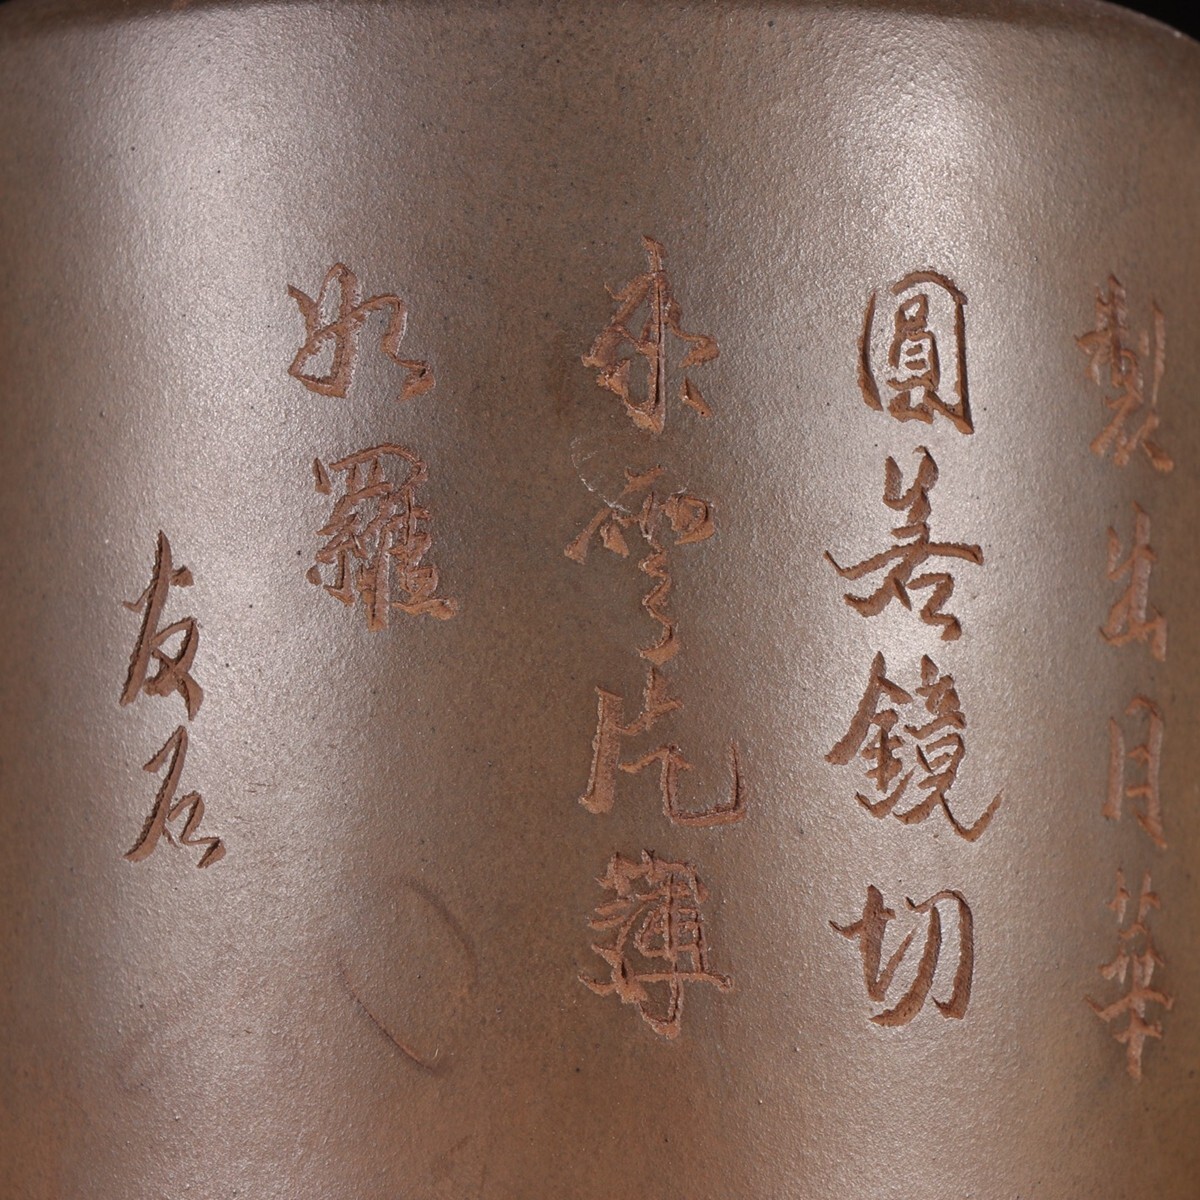 製出月華
圓若鏡切
來雲片薄
如羅
友石